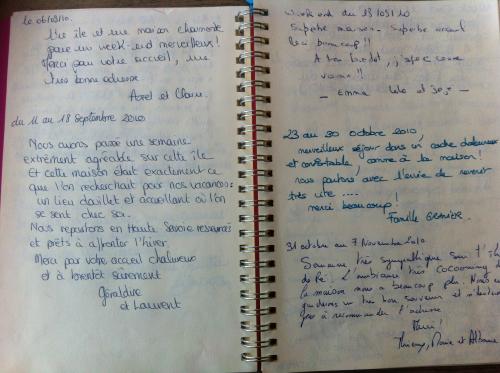 Le 06/09/10.
Une île et une maison charmante
pour un week-end merveilleux!
Merci pour votre accueil, une
très bonne adresse
Axel et
du 11 au 18 Septembre 2010
Nous avons passé une semaine
extrêment agréable sur cette île
et cette maison était exactement ce
que l'on recherchait pour nos vacances:
un lieu douillet et accueillant où l'on
se sent chez soi.
Nous repartons en Haute Savoie ressourcés
et prêts à affronter l'hiver.
Merci par votre accueil chaleureux
et à bientôt sûrement
Géraldine
et Laurent
Week end du
Superbe maison. Superbe accueil
beaucoup!!
A très bientôt, j'espère
- Emma et
23 au 30 octobre 2010,
merveilleux séjour dans un cadre chaleureux
et confortable, comme à la maison!
nous partons avec l'envie de revenir
très vite ....
merci beaucoup!
Famille
31 octobre au 7 Novembre 2010
Semaine très sympathique sur l'île
de Ré. L'ambiance très cocooning de
la maison nous a beaucoup plu. Nous en
garderons un très bon souvenir et n'hésiterons
pas à recommander l'adresse
Merci!
Thierry, Marie et